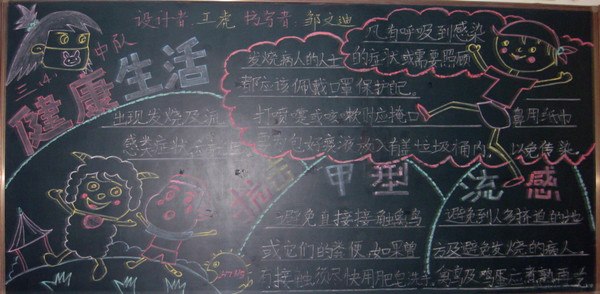 设计者:王虎 书写者:邹之迪
三.4.中队
健康生活
凡有呼吸到感染
发烧病人的人士的症状或需要照顾
都应该佩戴口罩保护自己
出现发烧及流
打喷嚏或咳嗽时应掩口
用纸巾
感类症状
包好痰液放入有盖垃圾桶内,以免传染。
甲型流感
避免直接接触禽鸟
避免到人多挤迫的地
或它们的粪便,如果曾
方及避免发烧的病人。
接触须尽快用肥皂洗手
禽鸟及鸡蛋应煮熟